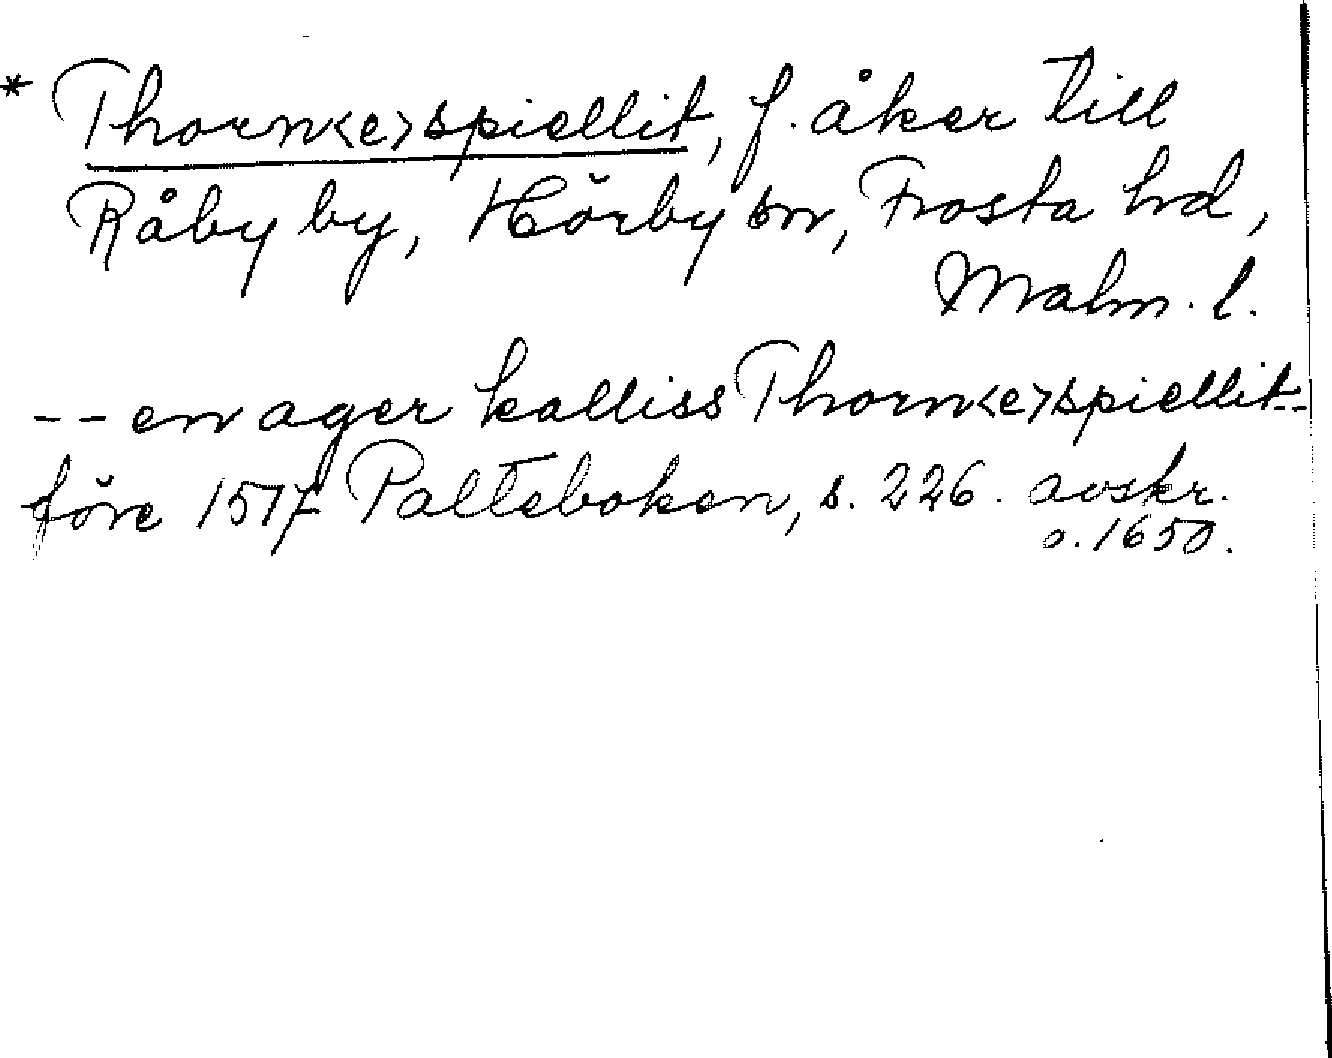 * Thorn<e>spiellit, f. åker till
Råby by, Hörby sn, Frosta hd,
Malm. l.
-- en ager kalliss Thorn<e>spiellit--
före 1517 Palteboken, s. 226. avskr.
o. 1650.